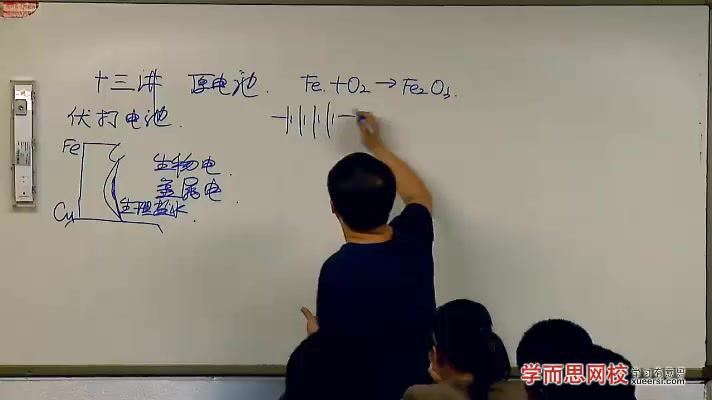 十三讲 原电池. Fe + O₂ → Fe₂O₃.
伏打电池.
Fe
生物电.
金属电
Cu 生理盐水.
学而思网校
xueersi.com